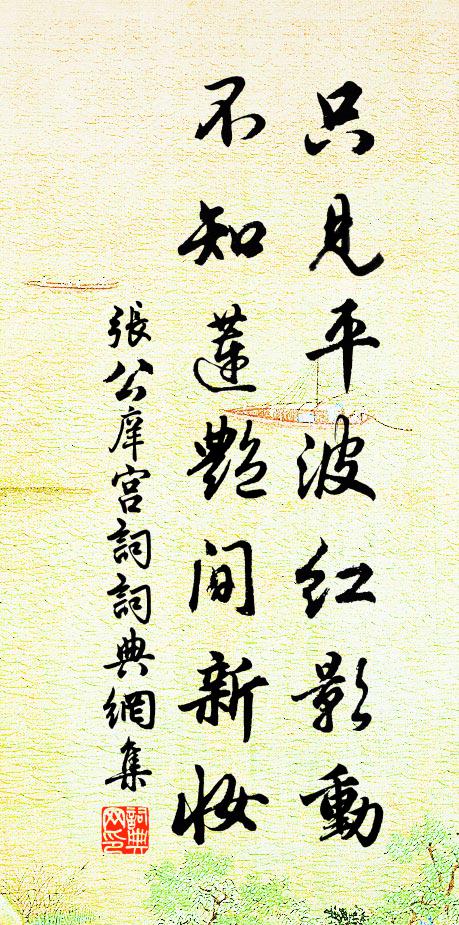 只見平波紅影動
不知蓮艷間新妝
張公庠宮詞詞典網集
詞典網印